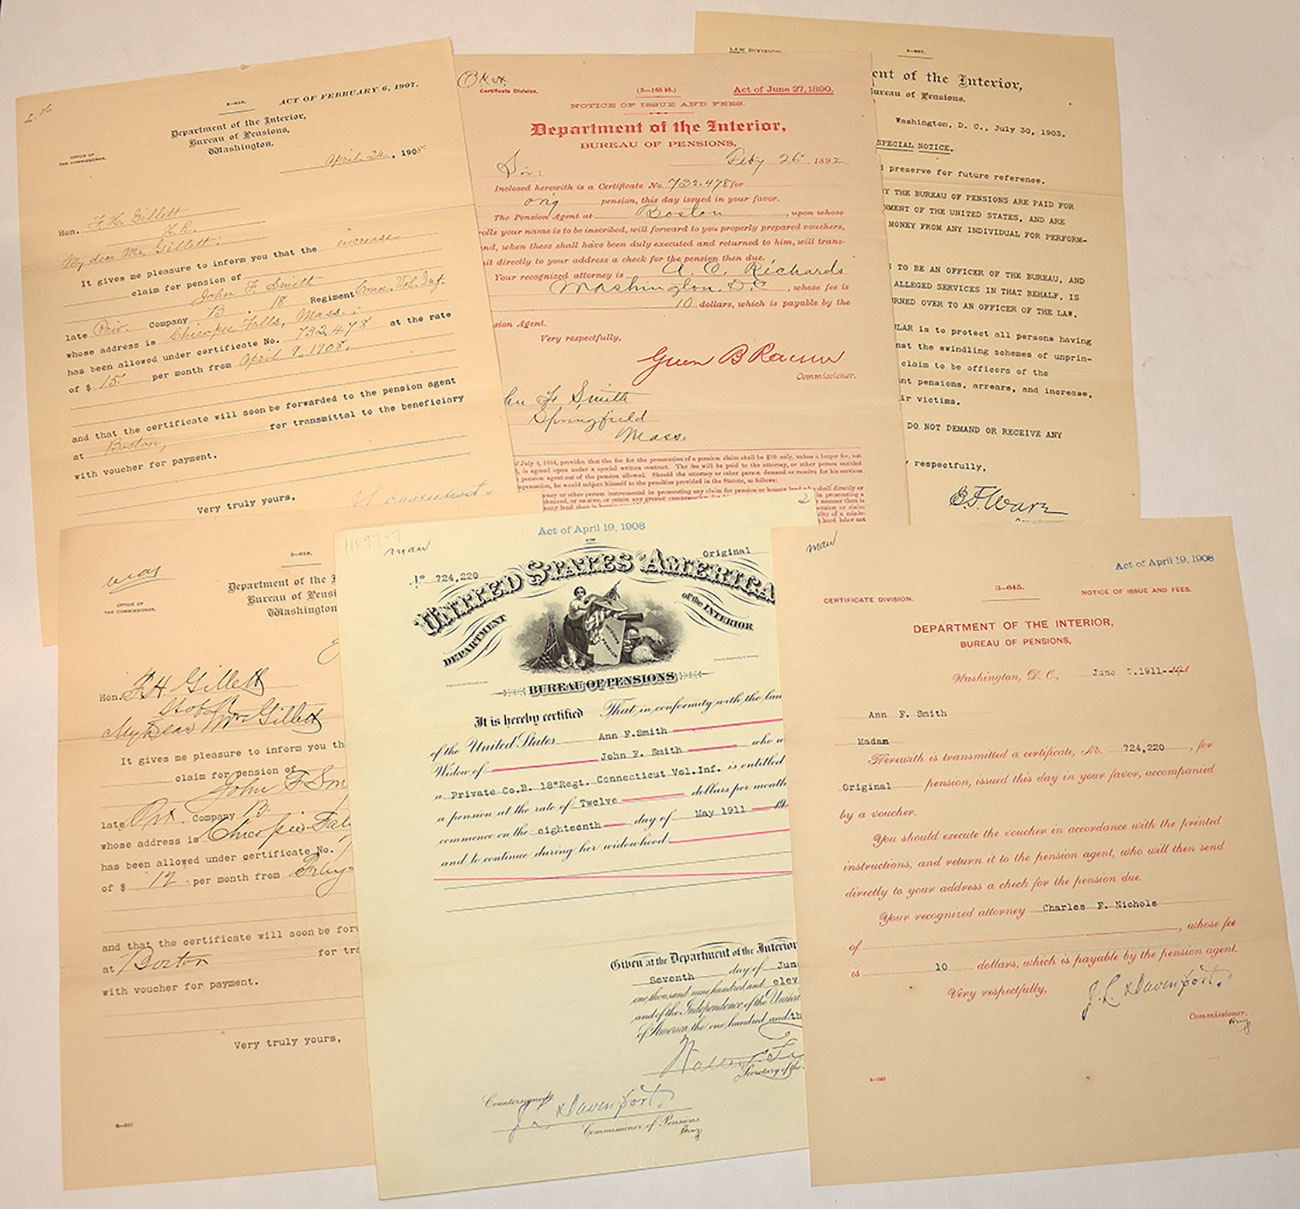 L. H
3—618.
ACT OF FEBRUARY 6, 1907.
Department of the Interior,
Bureau of Pensions,
Washington.
OFFICE OF
THE COMMISSIONER.
April 24, 1908
Hon. F. H. Gillett
H. R.
My dear Mr. Gillett:
It gives me pleasure to inform you that the increase
claim for pension of
John F. Smith
late Priv. Company B. 18 Regiment Conn. Vol. Inf.
whose address is Chicopee Falls, Mass.,
has been allowed under certificate No. 732,478 at the rate
of $ 15 per month from April 9, 1908,
and that the certificate will soon be forwarded to the pension agent
at Boston, for transmittal to the beneficiary
with voucher for payment.
Very truly yours,
Certificate Division.
(3—145 b.)
Act of June 27, 1890.
NOTICE OF ISSUE AND FEES.
Department of the Interior,
BUREAU OF PENSIONS,
Feby 26 1892
Sir:
Inclosed herewith is a Certificate No. 732.478 for
orig pension, this day issued in your favor.
The Pension Agent at Boston, upon whose
rolls your name is to be inscribed, will forward to you properly prepared vouchers,
nd, when these shall have been duly executed and returned to him, will trans-
it directly to your address a check for the pension then due.
Your recognized attorney is A. O. Richards
Washington, D.C, whose fee is
10 dollars, which is payable by the
sion Agent.
Very respectfully,
Green B Raum
Commissioner.
hn F. Smith
Springfield
Mass.
of July 4, 1884, provides that the fee for the prosecution of a pension claim shall be $10 only, unless a larger fee, not
LAW DIVISION
ent of the Interior,
Bureau of Pensions.
Washington, D. C., July 30, 1903.
SPECIAL NOTICE.
d preserve for future reference.
Y THE BUREAU OF PENSIONS ARE PAID FOR
NMENT OF THE UNITED STATES, AND ARE
MONEY FROM ANY INDIVIDUAL FOR PERFORM-
S TO BE AN OFFICER OF THE BUREAU, AND
ALLEGED SERVICES IN THAT BEHALF, IS
URNED OVER TO AN OFFICER OF THE LAW.
ULAR is to protect all persons having
nst the swindling schemes of unprin-
claim to be officers of the
nt pensions, arrears, and increase,
ir victims.
DO NOT DEMAND OR RECEIVE ANY
y respectfully,
E. F. Ware
3—618.
OFFICE OF
THE COMMISSIONER.
Department of the I
Bureau of Pensi
Washington
Hon. F. H. Gillett
My Dear Mr Gillett
It gives me pleasure to inform you th
claim for pension of
John F Sm
late Pvt. Company B.
whose address is Chicopee Fal
has been allowed under certificate No. 7
of $ 12 per month from
and that the certificate will soon be for
at Boston for tra
with voucher for payment.
Very truly yours,
Act of April 19, 1908
maw
2
No 724,220
Original
UNITED STATES OF AMERICA
DEPARTMENT of the INTERIOR
BUREAU OF PENSIONS
It is hereby certified That in conformity with the law
of the United States Ann F. Smith
Widow of John F. Smith who w
a Private Co.B. 18" Regt. Connecticut Vol. Inf. is entitled
a pension at the rate of Twelve dollars per month
commence on the eighteenth day of May 1911
and to continue during her widowhood
Given at the Department of the Interior
Seventh day of Jun
one thousand nine hundred and elev
and of the Independence of the United
of America the one hundred and th
Secretary of the
Countersigned
J. L. Davenport.
Commissioner of Pensions
maw
Act of April 19, 1908
CERTIFICATE DIVISION.
3—645.
NOTICE OF ISSUE AND FEES.
DEPARTMENT OF THE INTERIOR,
BUREAU OF PENSIONS,
Washington, D. C., June 7, 1911
Ann F. Smith
Madam
Herewith is transmitted a certificate, No. 724,220, for
Original pension, issued this day in your favor, accompanied
by a voucher.
You should execute the voucher in accordance with the printed
instructions, and return it to the pension agent, who will then send
directly to your address a check for the pension due.
Your recognized attorney Charles F. Nichols
of , whose fee
is 10 dollars, which is payable by the pension agent.
Very respectfully,
J. L. Davenport.
Commissioner.